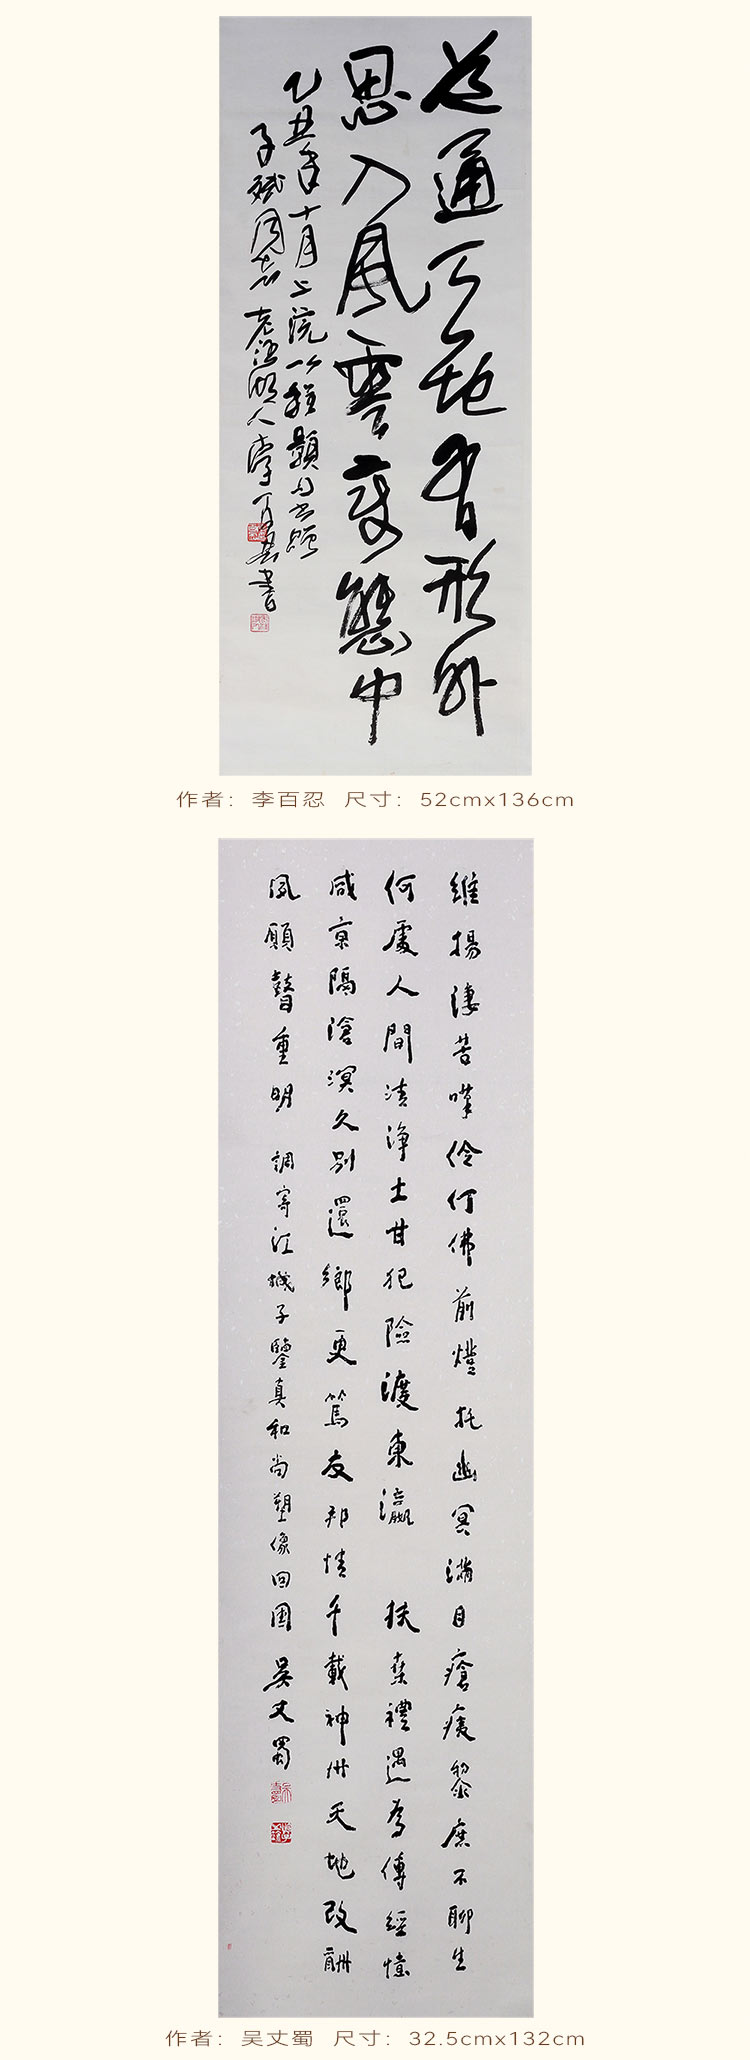 道通天地有形外
思入风雲变態中
乙丑年十月上浣以程顥句书赠
子斌同志 湖人李百忍書
作者：李百忍 尺寸：52cmx136cm
維揚淒苦嘆伶仃佛前燈托幽冥滿目瘡痍黎庶不聊生
何處人間清淨土甘犯險渡東瀛 扶桑禮遇為傳經憶
咸京隔滄溟久別還鄉更篤友邦情千載神州天地改酬
夙願瞽重明 調寄江城子鑒真和尚塑像回國 吳丈蜀
作者：吴丈蜀 尺寸：32.5cmx132cm